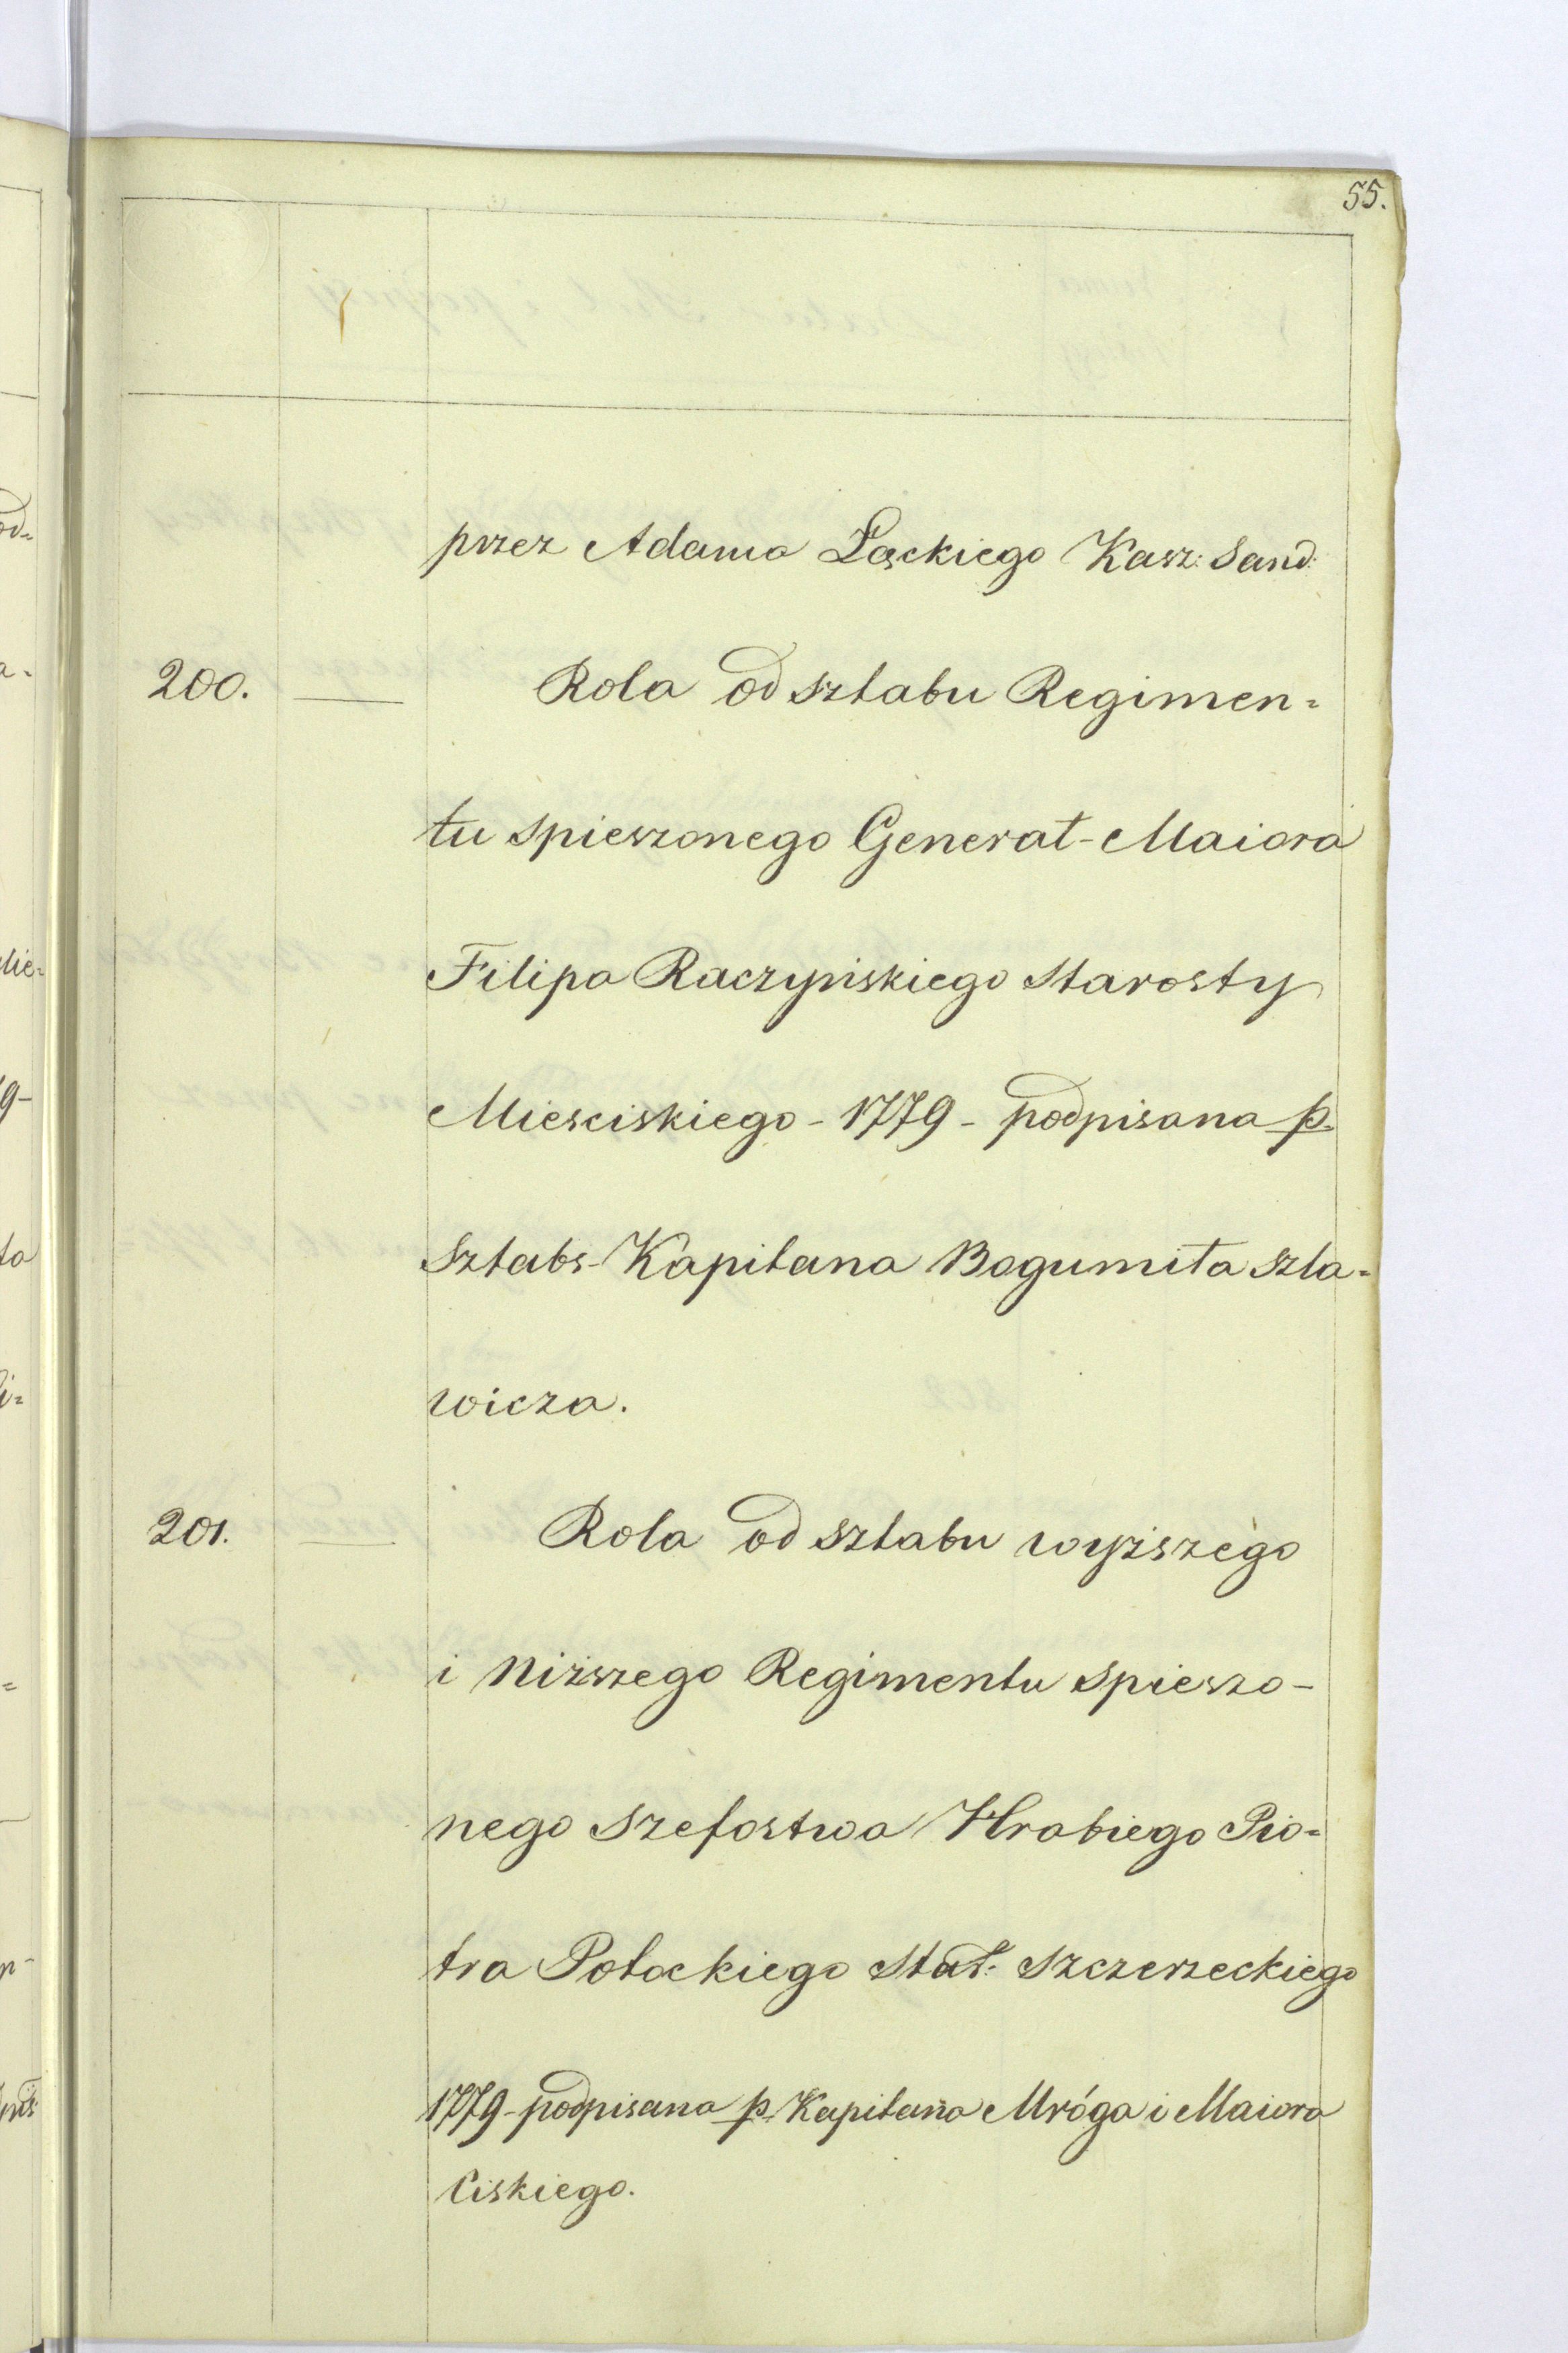 55.
przez Adama Łąckiego Kasz: Sand:
200. — Rola od sztabu Regimen=
tu spieszonego Generał-Maiora
Filipa Raczyńskiego Starosty
Miesciskiego - 1779 - podpisana p.
Sztabs-Kapitana Bogumiła Szla=
wicza.
201. — Rola od sztabu wyższego
i niższego Regimentu spieszo-
nego szefostwa Hrabiego Pio=
tra Potockiego Stat: Szczerzeckiego
1779 - podpisana p. Kapitana Mróga i Maiora
Ciskiego.